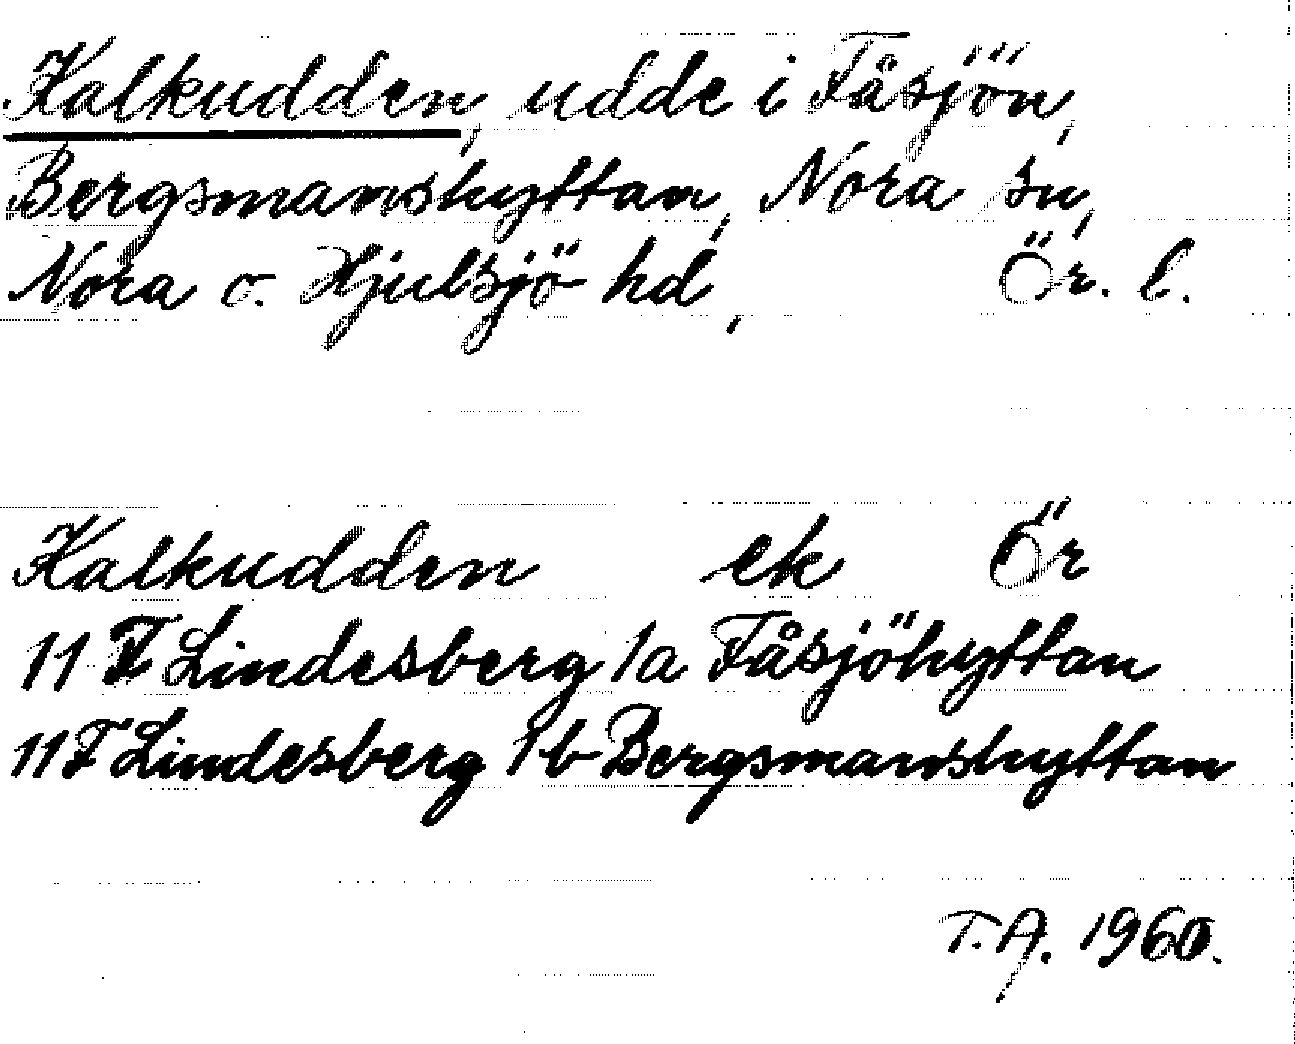 Kalkudden, udde i Fåsjön,
Bergsmanshyttan, Nora sn,
Nora o. Hjulsjö hd, Ör. l.
Kalkudden ek Ör
11 F Lindesberg 1a Fåsjöhyttan
11 F Lindesberg 1b Bergsmanshyttan
T.A. 1960.